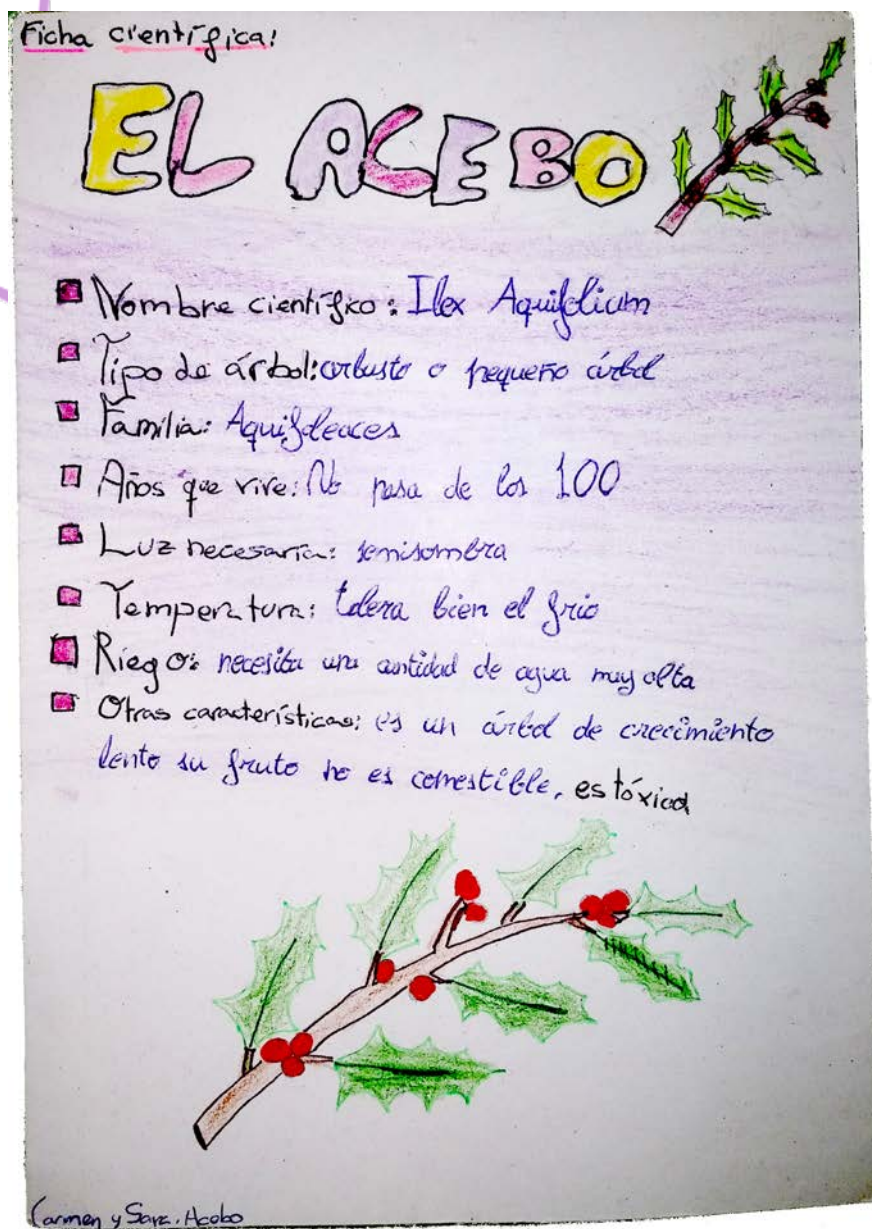 Ficha científica:
EL ACEBO
Nombre científico: Ilex Aquifolium
Tipo de árbol: arbusto o pequeño árbol
Familia: Aquifoleaces
Años que vive: No pasa de los 100
Luz necesaria: semisombra
Temperatura: tolera bien el frio
Riego: necesita una cantidad de agua muy alta
Otras características: es un árbol de crecimiento
lento su fruto no es comestible, es tóxico
Carmen y Sara. Acebo